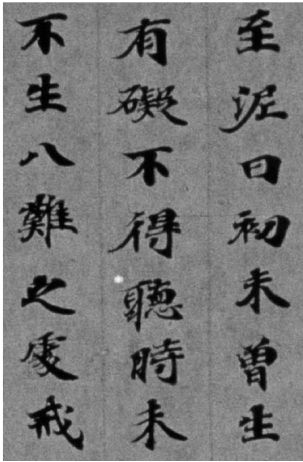 至泥曰初未曾生
有礙不得聽時未
不生八難之處戒